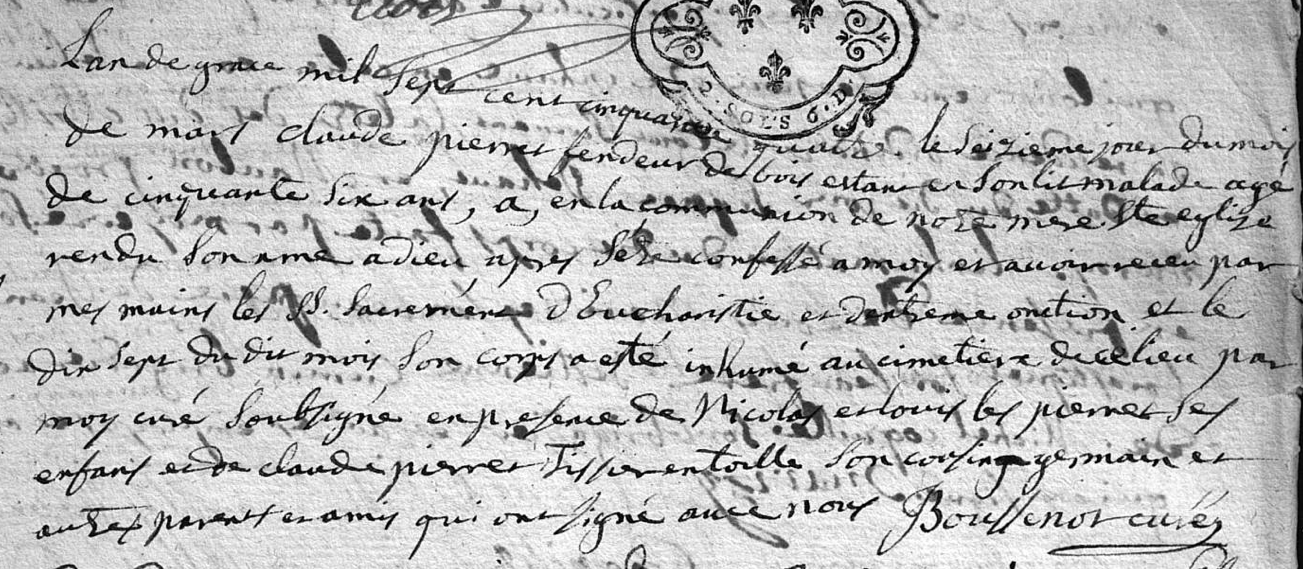 2. SOLS 6. D.
Lan de grace mil sept cent cinquante quatre le Seizieme jour du mois
de mars claude pierret fendeur de bois estant en son lit malade agé
de cinquante six ans, a, en la communion de notre mere Ste eglize
rendu son ame a dieu apres sétre confessé a moy et avoir receu par
mes mains les SS. Sacrement d'Eucharistie et dextreme onction et le
dix sept du dit mois son corps a esté inhumé au cimetiere de ce lieu par
moy curé soubsigné en presence de Nicolas et louis les pierret ses
enfans et de claude pierret Tissier en toille son cousin germain et
autres parents et amis qui ont signé avec nous Boussenot curé